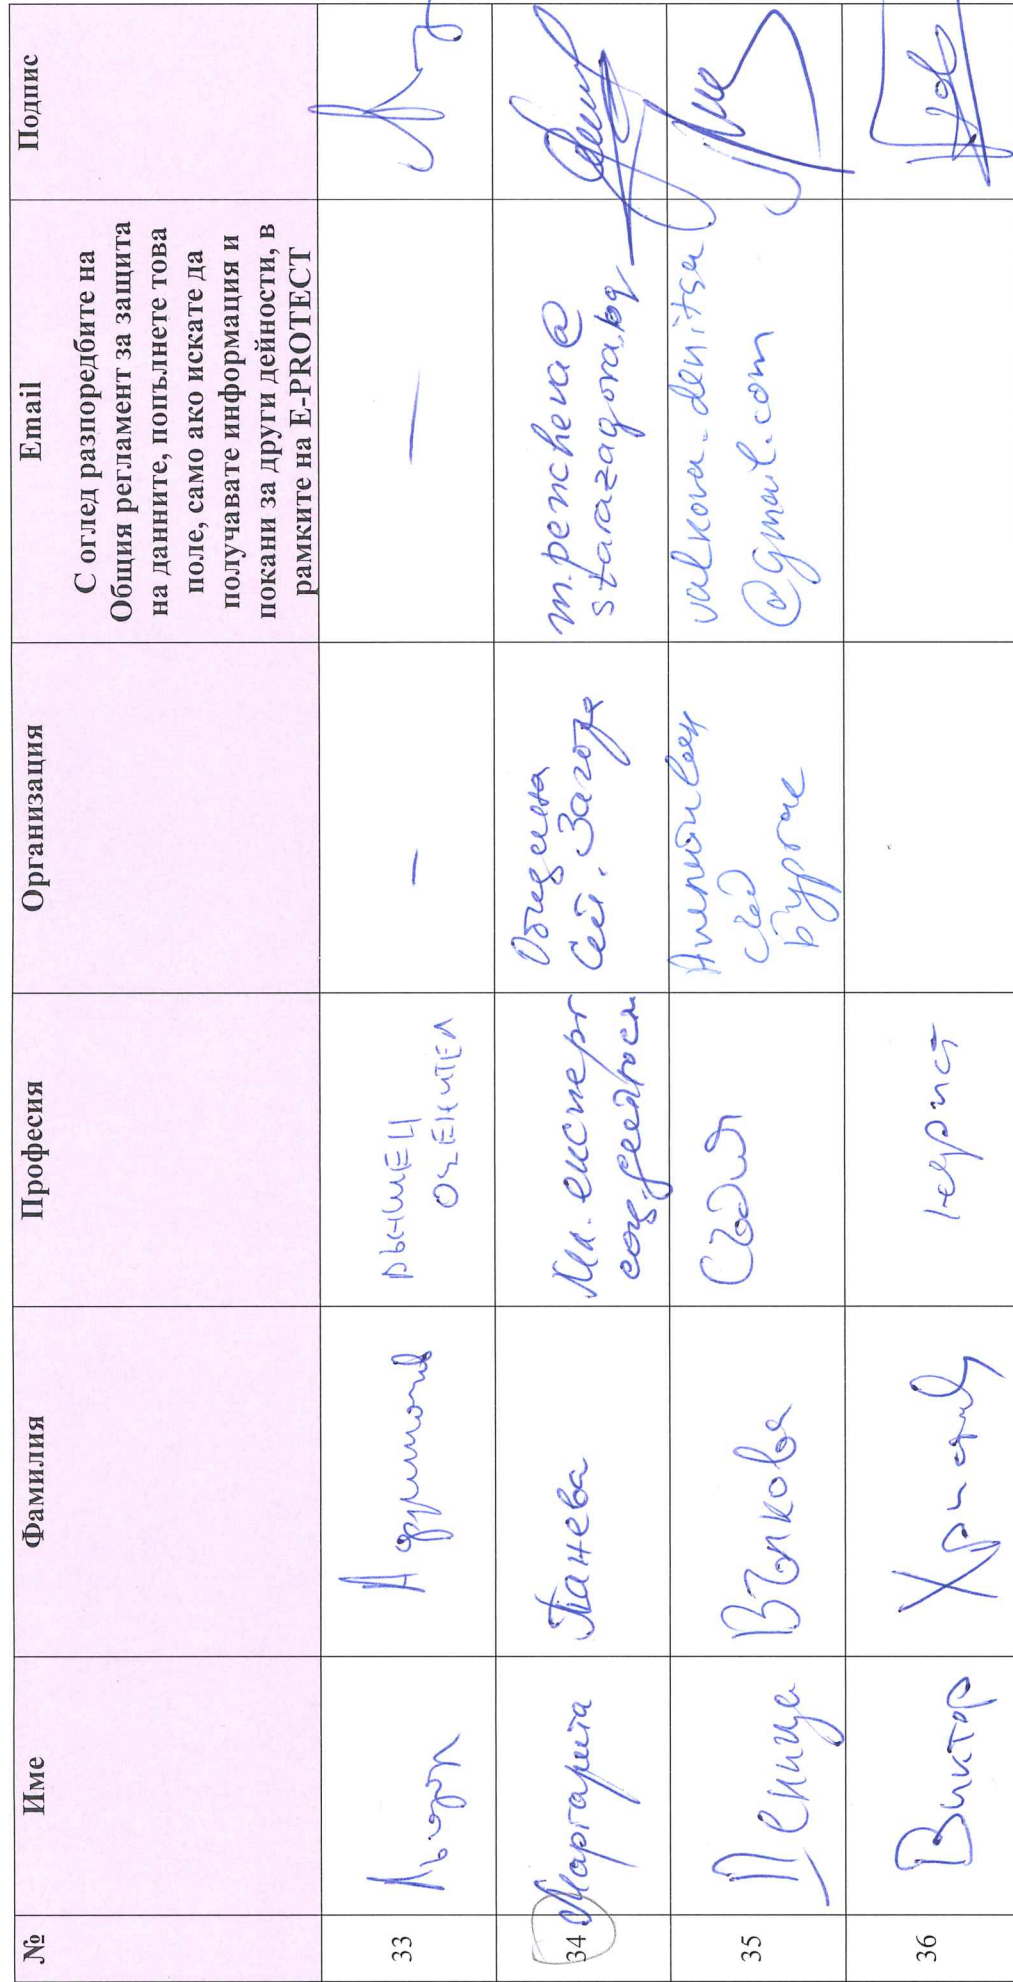 №
Име
Фамилия
Професия
Организация
Email
С оглед разпоредбите на
Общия регламент за защита
на данните, попълнете това
поле, само ако искате да
получавате информация и
покани за други дейности, в
рамките на E-PROTECT
Подпис
33
—
—
34
Маргарита
Панева
Мл. експерт
Община
Ст. Загора
m.pencheva@
starazagora.bg
35
Деница
Вълкова
Съдия
Апелативен
съд
Бургас
valkova.denitsa
@gmail.com
36
Виктор
юрист